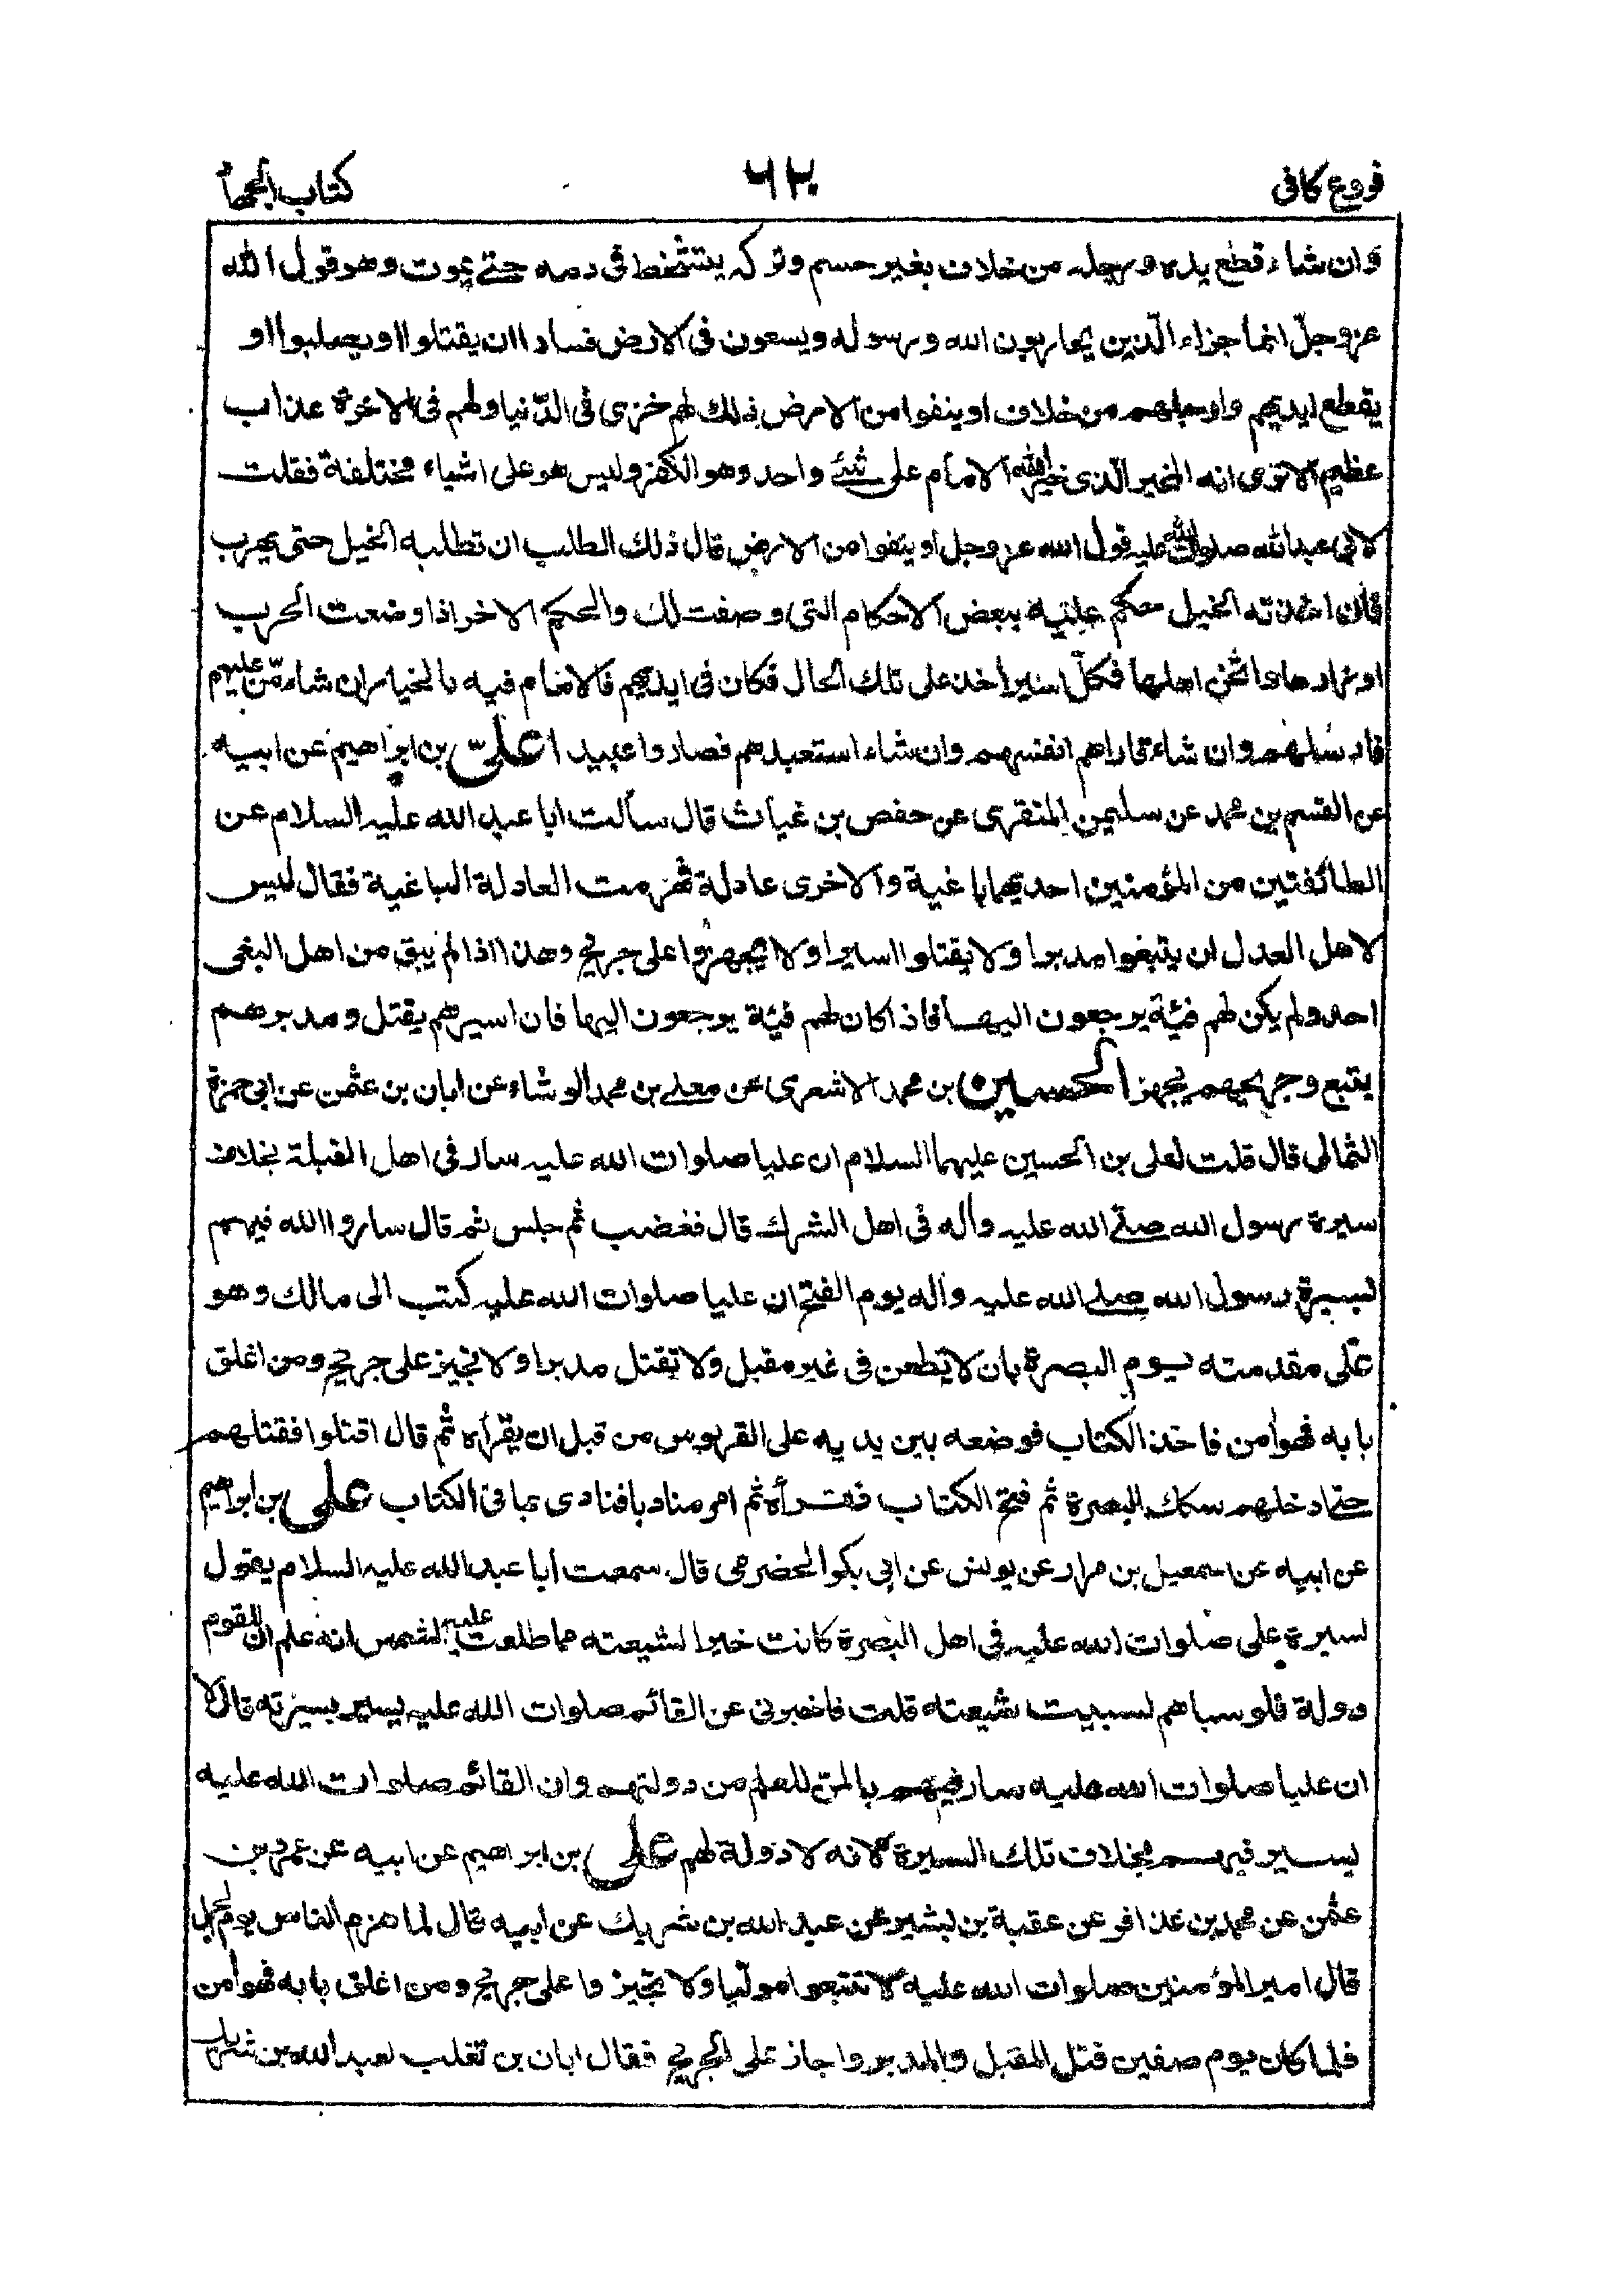 فروع كافى ٦٢٠ كتاب الجهاد
وان شاء قطع يده ورجله من خلاف بغير حسم وتركه يتشحط فى دمه حتى يموت وهو قول الله
عز وجلّ انما جزاء الّذين يحاربون الله ورسوله ويسعون فى الارض فسادا ان يقتلوا او يصلبوا او
يقطع ايديهم وارجلهم من خلاف او ينفوا من الارض ذلك لهم خزى فى الدّنيا ولهم فى الاخرة عذاب
عظيم الا ترى انه المخير الّذى خير الله الامام على شئ واحد وهو الكفر وليس هو على اشياء مختلفة فقلت
لابى عبدالله صلوات الله عليه قول الله عز وجل او ينفوا من الارض قال ذلك الطلب ان تطلبه الخيل حتى يهرب
فان اخذته الخيل حكم عليه ببعض الاحكام التى وصفت لك والحكم الاخر اذا وضعت الحرب
اوزارها واثخن اهلها فكل اسير اخذ على تلك الحال فكان فى ايديهم فالامام فيه بالخيار ان شاء منّ عليهم
فارسلهم وان شاء فاداهم انفسهم وان شاء استعبدهم فصاروا عبيدا علىّ بن ابراهيم عن ابيه
عن القسم بن محمد عن سليمن المنقرى عن حفص بن غياث قال سألت ابا عبد الله عليه السلام عن
الطائفتين من المؤمنين احديهما باغية والاخرى عادلة فهزمت العادلة الباغية فقال ليس
لاهل العدل ان يتبعوا مدبرا ولا يقتلوا اسيرا ولا يجهزوا على جريح وهذا اذا لم يبق من اهل البغى
احد ولم يكن لهم فئية يرجعون اليها فاذا كان لهم فيئة يرجعون اليها فان اسيرهم يقتل ومدبرهم
يتبع وجريحهم يجهز الحسين بن محمد الاشعرى عن معلى بن محمد الوشاء عن ابان بن عثمن عن ابى حمزة
الثمالى قال قلت لعلى بن الحسين عليهما السلام ان عليا صلوات الله عليه سار فى اهل القبلة بخلاف
سيرة رسول الله صلى الله عليه وآله فى اهل الشرك قال فغضب ثم جلس ثم قال سار والله فيهم
بسيرة رسول الله صلى الله عليه وآله يوم الفتح ان عليا صلوات الله عليه كتب الى مالك وهو
على مقدمته يوم البصرة بان لا يطعن فى غير مقبل ولا تقتل مدبرا ولا تجيز على جريح ومن اغلق
بابه فهو امن فاخذ الكتاب فوضعه بين يديه على القربوس من قبل ان يقرأه ثم قال اقتلوا فقتلهم
حتى ادخلهم سكك البصرة ثم فتح الكتاب فقرأه ثم امر مناديا فنادى بما فى الكتاب على بن ابراهيم
عن ابيه عن اسمعيل بن مرار عن يونس عن ابى بكر الحضرمى قال سمعت ابا عبد الله عليه السلام يقول
لسيرة على صلوات الله عليه فى اهل البصرة كانت خيرا لشيعته مما طلعت عليه الشمس انه علم ان للقوم
دولة فلو سباهم لسبيت شيعته قلت فاخبرنى عن القائم صلوات الله عليه يسير بسيرته قال لا
ان عليا صلوات الله عليه سار فيهم بالمن للعلم من دولتهم وان القائم صلوات الله عليه
يسير فيهم بخلاف تلك السيرة لانه لا دولة لهم على بن ابراهيم عن ابيه عن عمرو بن
عثمن عن محمد بن عذافر عن عقبة بن بشير عن عبد الله بن شريك عن ابيه قال لما هزم الناس يوم الجمل
قال امير المؤمنين صلوات الله عليه لا تتبعوا موليا ولا تجيزوا على جريح ومن اغلق بابه فهو امن
فلما كان يوم صفين قتل المقبل والمدبر واجاز على الجريح فقال ابان بن تغلب لعبد الله بن شريك